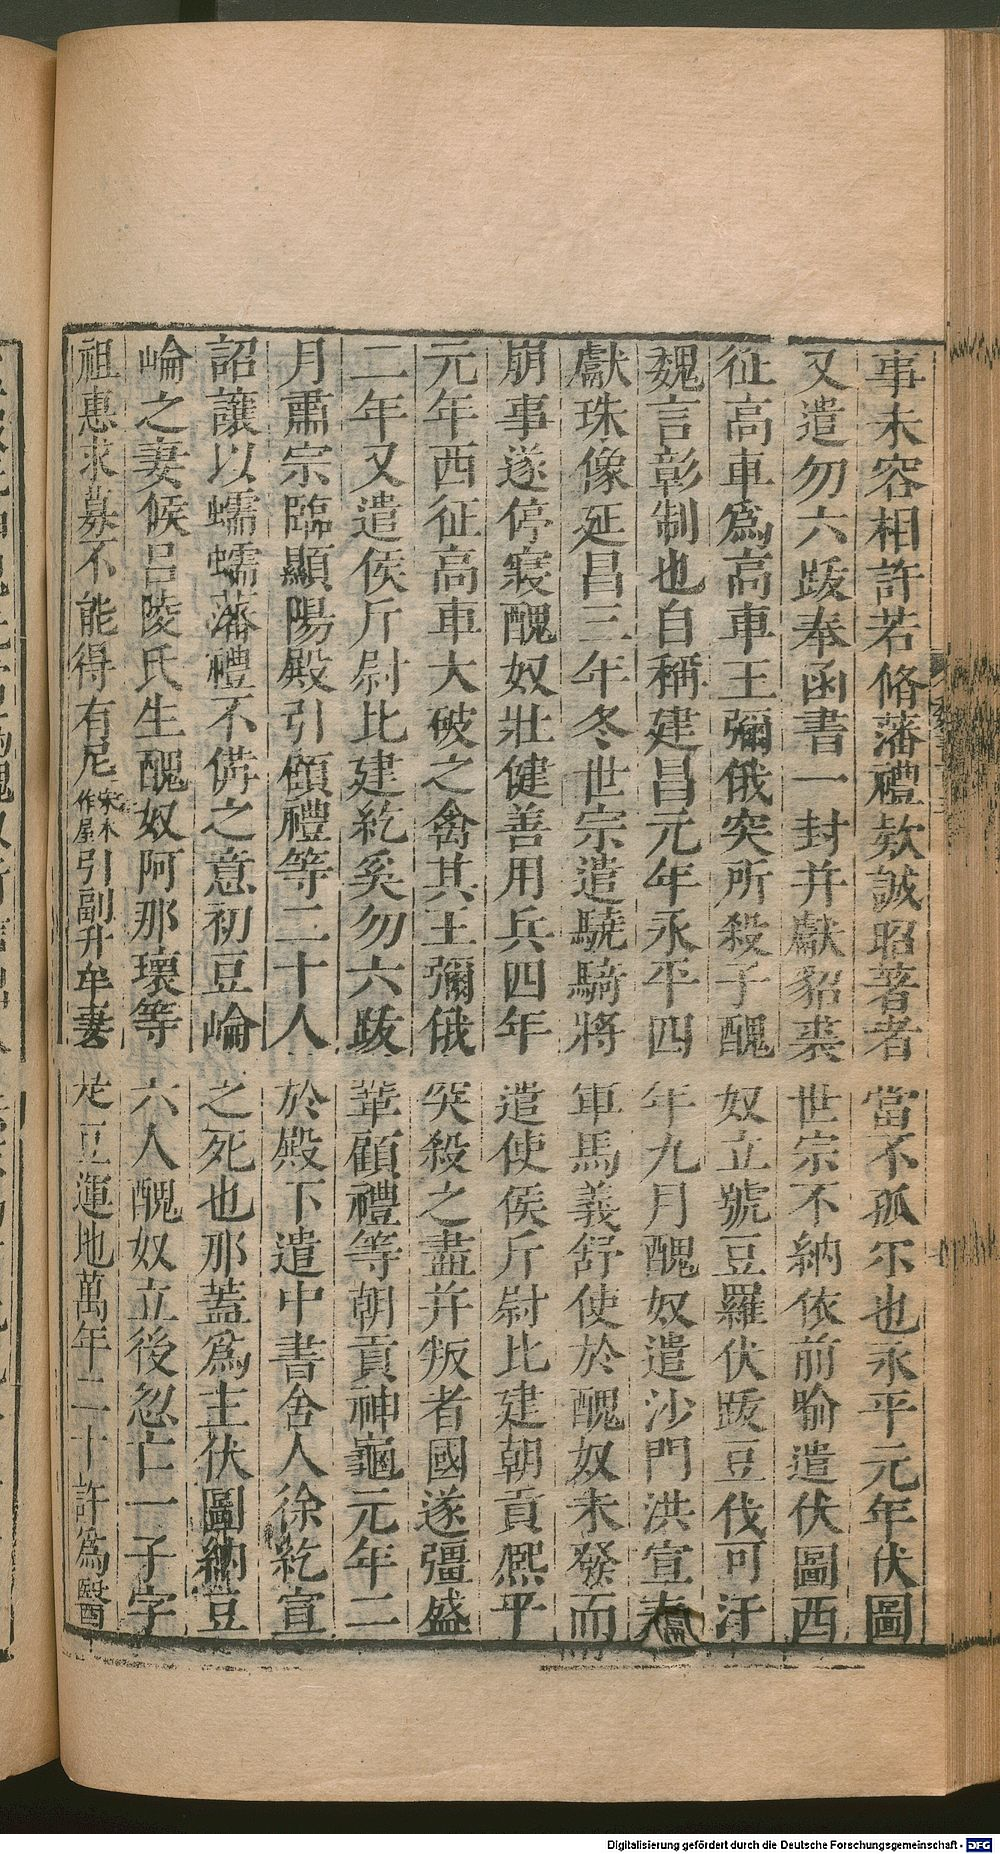 事未容相許若脩藩禮欵誠昭著者當不孤尓也永平元年伏圖
又遣勿六跋奉函書一封并獻貂裘世宗不納依前喻遣伏圖西
征高車爲高車王彌俄突所殺子醜奴立號豆羅伏跋豆伐可汗
魏言彰制也自稱建昌元年永平四年九月醜奴遣沙門洪宣奉
獻珠像延昌三年冬世宗遣驍騎將軍馬義舒使於醜奴未發而
崩事遂停寢醜奴壯健善用兵四年遣使侯斤尉比建朝貢熈平
元年西征高車大破之禽其王彌俄突殺之盡并叛者國遂彊盛
二年又遣侯斤尉比建紇奚勿六跋鞏顧禮等朝貢神龜元年二
月肅宗臨顯陽殿引顧禮等二十人於殿下遣中書舍人徐紇宣
詔讓以蠕蠕藩禮不備之意初豆崘之死也那蓋爲主伏圖納豆
崘之妻候呂陵氏生醜奴阿那瓌等六人醜奴立後忽亡一子字
祖惠求募不能得有尼宋本作屋引副升牟妻是豆運地萬年二十許爲醫
Digitalisierung gefördert durch die Deutsche Forschungsgemeinschaft - DFG